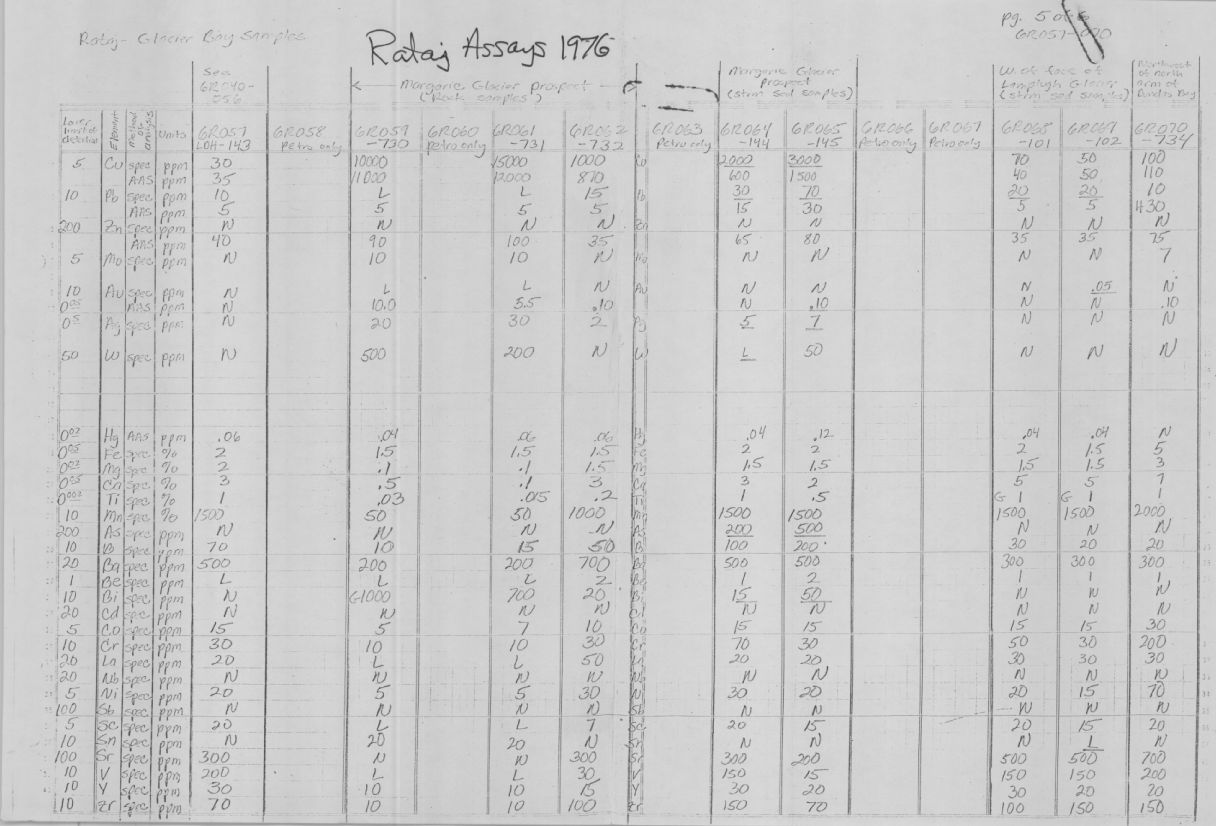 pg. 5 of 6
GR057-070
Rataj - Glacier Bay Samples
Rataj Assays 1976
See GR040-056
Margerie Glacier prospect (Rock samples)
Margerie Glacier prospect (strm sed samples)
W. of face of Lamplugh Glacier (strm sed samples)
Northwest of north arm of Dundas Bay
Lower limit of detection Element Method of analysis Units GR057 LDH-143 GR058 Petro only GR059 -730 GR060 petro only GR061 -731 GR062 -732 GR063 Petro only GR064 -144 GR065 -145 GR066 Petro only GR067 Petro only GR068 -101 GR069 -102 GR070 -734
5 Cu spec ppm 30 10000 15000 1000 Cu 2000 3000 70 50 100
AAS ppm 35 11000 12000 870 600 1500 40 50 110
10 Pb spec ppm 10 L L 15 Pb 30 70 20 20 10
AAS ppm 5 5 5 5 15 30 5 5 430
200 Zn spec ppm N N N N Zn N N N N N
AAS ppm 40 90 100 35 65 80 35 35 75
5 Mo spec ppm N 10 10 N Mo N N N N 7
10 Au spec ppm N L L N Au N N N .05 N
0.05 AAS ppm N 10.0 3.5 .10 N .10 N N .10
0.5 Ag spec ppm N 20 30 2 Ag 5 7 N N N
50 W spec ppm N 500 200 N W L 50 N N N
0.02 Hg AAS ppm .06 .04 .06 .06 Hg .04 .12 .04 .04 N
0.05 Fe spec % 2 1.5 1.5 1.5 Fe 2 2 2 1.5 5
0.02 Mg spec % 2 .1 .1 1.5 Mg 1.5 1.5 1.5 1.5 3
0.05 Ca spec % 3 .5 .1 3 Ca 3 2 5 5 7
0.002 Ti spec % 1 .03 .015 .2 Ti 1 .5 G 1 G 1 1
10 Mn spec % 1500 50 50 1000 Mn 1500 1500 1500 1500 2000
200 As spec ppm N N N N As 200 500 N N N
10 B spec ppm 70 10 15 50 B 100 200 30 20 20
20 Ba spec ppm 500 200 200 700 Ba 500 500 300 300 300
1 Be spec ppm L L L 2 Be 1 2 1 1 1
10 Bi spec ppm N G1000 700 20 Bi 15 50 N N N
20 Cd spec ppm N N N N Cd N N N N N
5 Co spec ppm 15 5 7 10 Co 15 15 15 15 30
10 Cr spec ppm 30 10 10 30 Cr 70 30 50 30 200
20 La spec ppm 20 L L 50 La 20 20 30 30 30
20 Nb spec ppm N N N N N N N N N N
5 Ni spec ppm 20 5 5 30 Ni 30 20 20 15 70
100 Sb spec ppm N N N N Sb N N N N N
5 Sc spec ppm 20 L L 7 Sc 20 15 20 15 20
10 Sn spec ppm N 20 20 N Sn N N N L N
100 Sr spec ppm 300 N N 300 Sr 300 200 500 500 700
10 V spec ppm 200 L L 30 V 150 15 150 150 200
10 Y spec ppm 30 10 10 15 Y 30 20 30 20 20
10 Zr spec ppm 70 10 10 100 Zr 150 70 100 150 150